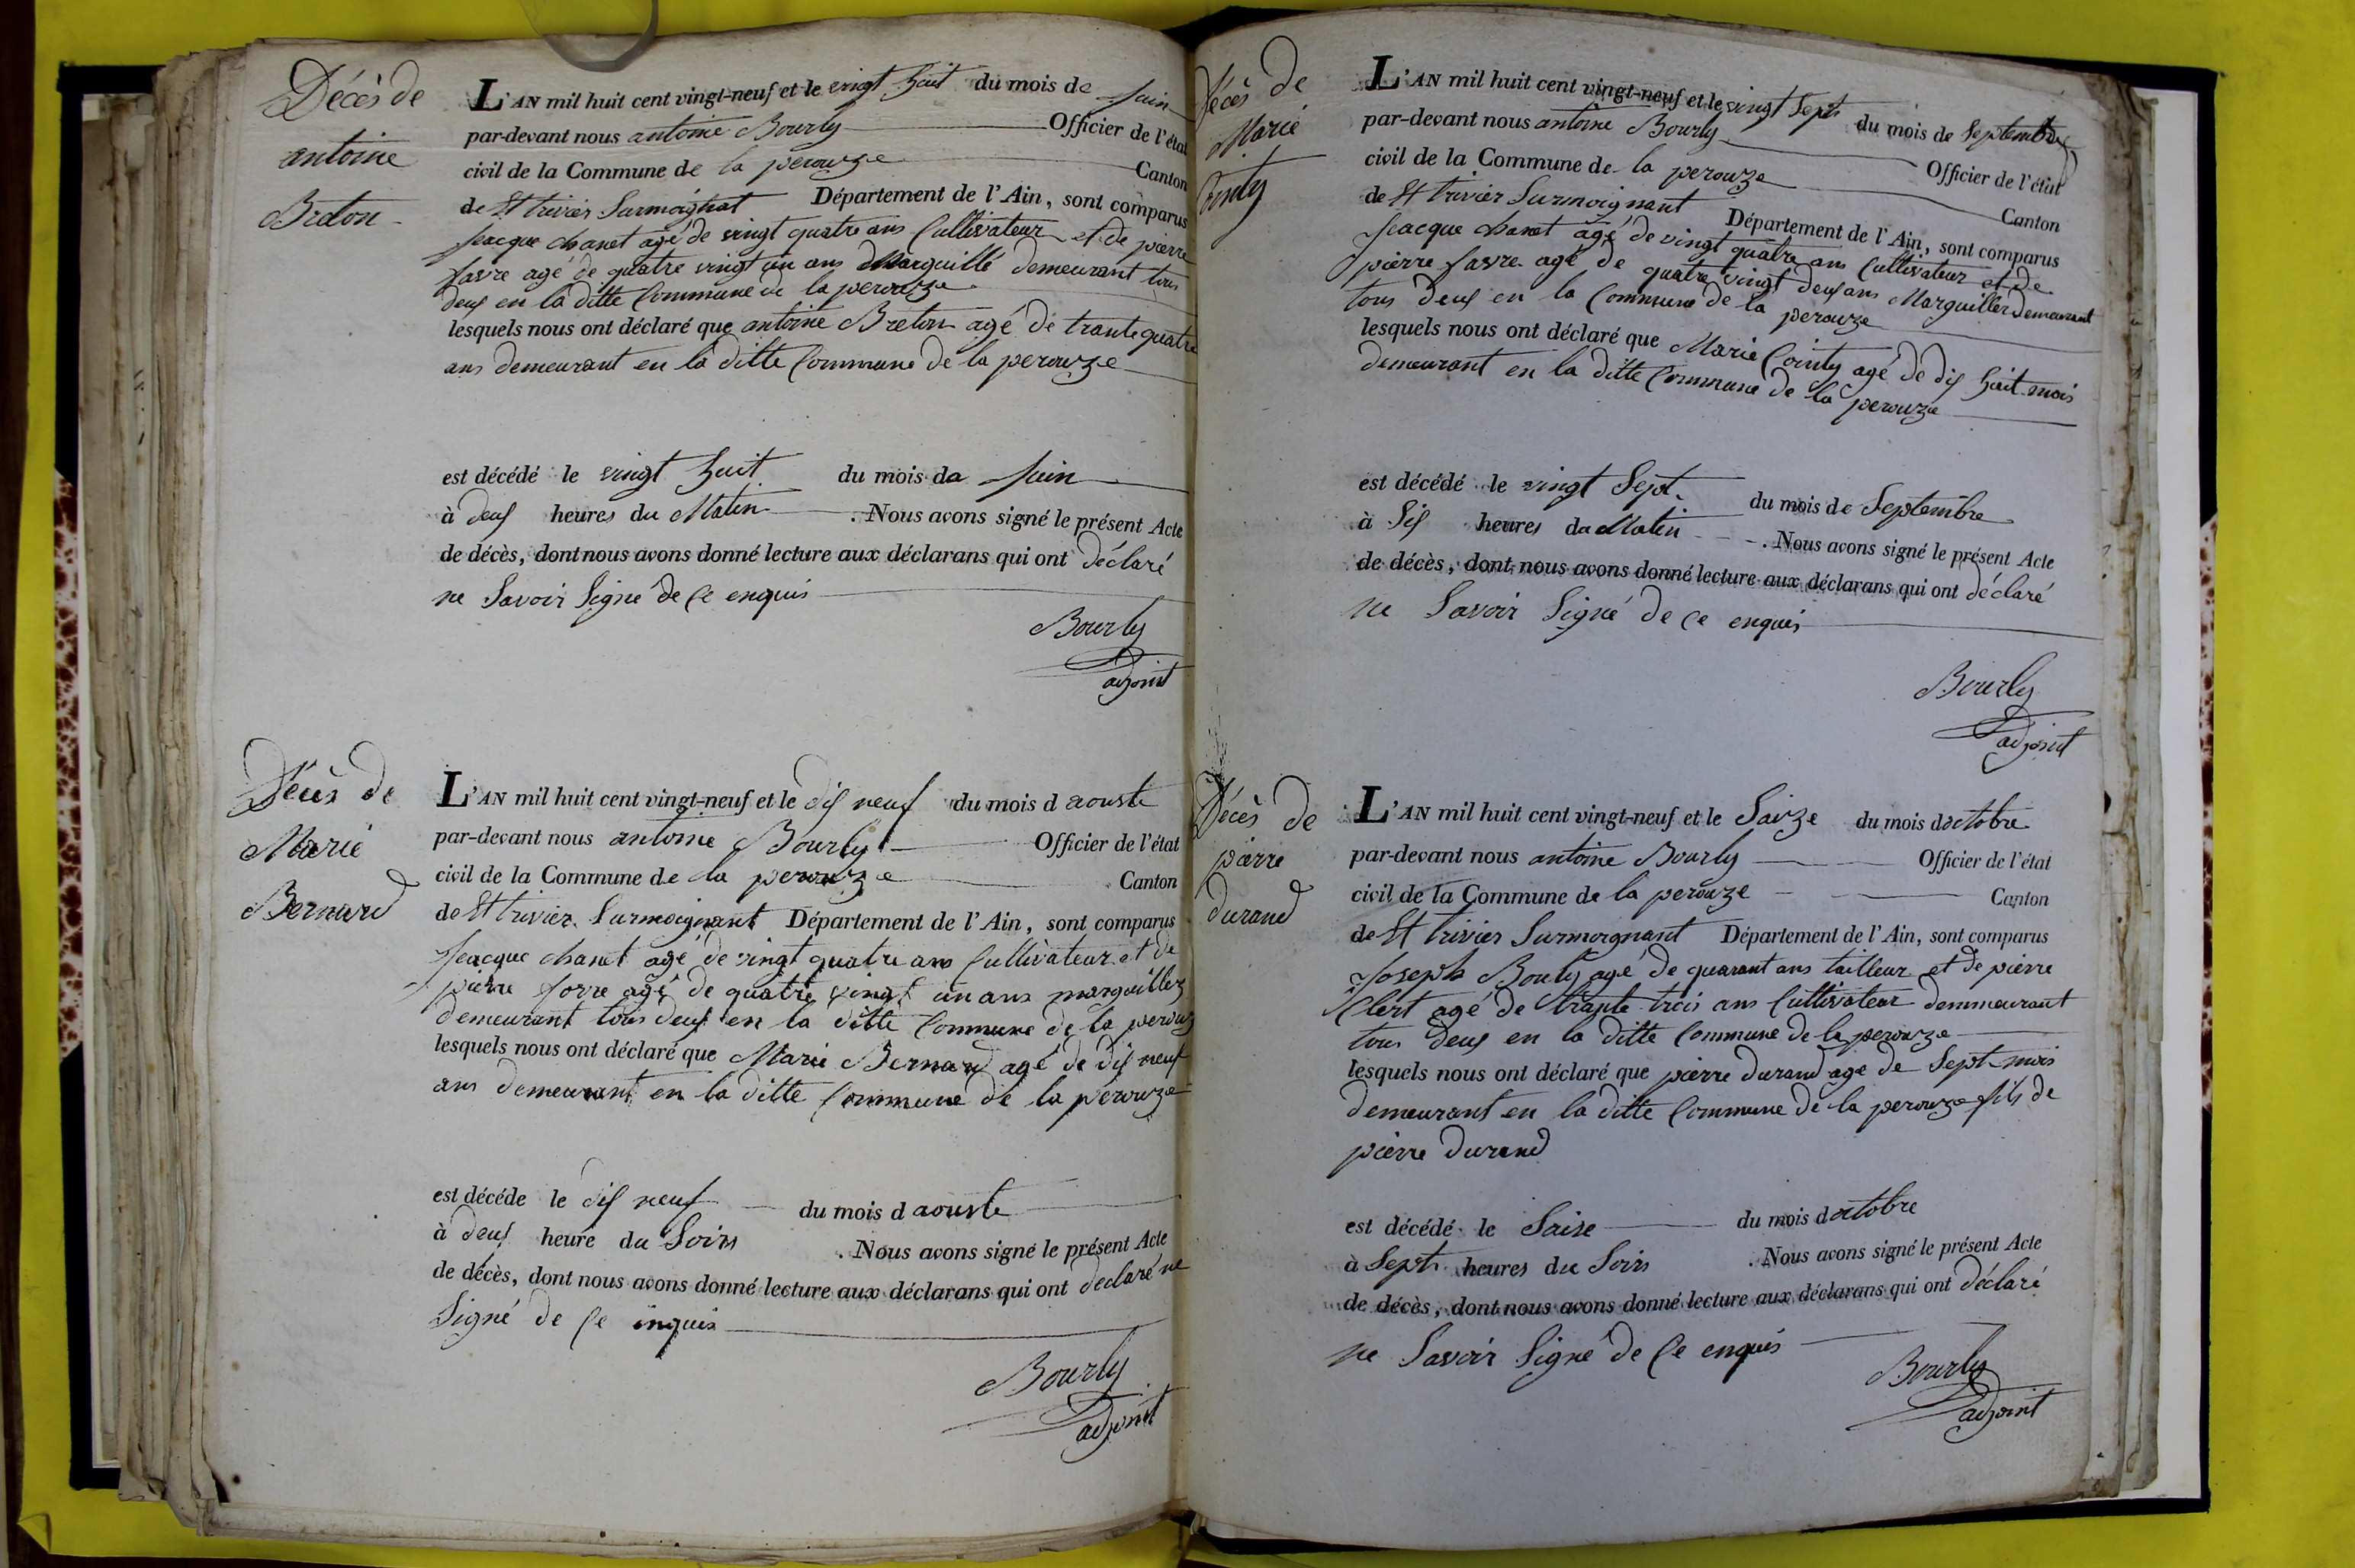 Décès de
antoine
Breton
L'AN mil huit cent vingt-neuf et le vingt huit du mois de juin
par-devant nous antoine Bourly Officier de l'état
civil de la Commune de la perouze Canton
de St trivier Surmoignat Département de l'Ain, sont comparus
jeacque chanet agé de vingt quatre ans Cultivateur et de pierre
favre agé de quatre vingt un ans Marguillé demeurant tous
deuf en la ditte Commune de la perouze
lesquels nous ont déclaré que antoine Breton agé de trante quatre
ans demeurant en la ditte Commune de la perouze
est décédé le vingt huit du mois de juin
à deuf heures du Matin . Nous avons signé le présent Acte
de décès, dont nous avons donné lecture aux déclarans qui ont déclaré
ne Savoir Signé de Ce enquis
Bourly
adjoint
Décès de
Marie
Bernard
L'AN mil huit cent vingt-neuf et le dif neuf du mois d aouste
par-devant nous antoine Bourly Officier de l'état
civil de la Commune de la perouze Canton
de St trivier Surmoignant Département de l'Ain, sont comparus
jeacque chanet agé de vingt quatre ans Cultivateur et de
pierre forre agé de quatre vingt un ans marguiller
demeurant tous deuf en la ditte Commune de la perouz
lesquels nous ont déclaré que Marie Bernard agé de dif neuf
ans demeurant en la ditte Commune de la perouze
est décéde le dif neuf du mois d aouste
à deuf heure du Soirs . Nous avons signé le présent Acte
de décès, dont nous avons donné lecture aux déclarans qui ont declaré ne
Signé de Ce inquis
Bourly
adjoint
Décès de
Marie
L'AN mil huit cent vingt-neuf et le vingt Sept du mois de Septembre
par-devant nous antoine Bourly Officier de l'état
civil de la Commune de la perouze Canton
de St trivier Surmoignant Département de l'Ain, sont comparus
jeacque chanet agé de vingt quatre ans Cultivateur et de
pierre favre agé de quatre vingt deuf ans Marguiller demeurant
tous deuf en la Commune de la perouze
lesquels nous ont déclaré que Marie Cointy agé de dif huit mois
demeurant en la ditte Commune de la perouze
est décédé le vingt Sept du mois de Septembre
à Sif heures du Matin . Nous avons signé le présent Acte
de décès, dont nous avons donné lecture aux déclarans qui ont déclaré
ne Savoir Signé de Ce enquis
Bourly
adjoint
Décès de
pierre
durand
L'AN mil huit cent vingt-neuf et le Saize du mois d octobre
par-devant nous antoine Bourly Officier de l'état
civil de la Commune de la perouze Canton
de St trivier Surmoignant Département de l'Ain, sont comparus
joseph Bouly agé de quarant ans tailleur et de pierre
Clert agé de trante trois ans Cultivateur demmeurant
tous deuf en la ditte Commune de la perouze
lesquels nous ont déclaré que pierre durand age de Sept mois
demeurant en la ditte Commune de la perouze fils de
pierre durand
est décédé le Saise du mois d octobre
à Sept heures du Soirs . Nous avons signé le présent Acte
de décès, dont nous avons donné lecture aux déclarans qui ont déclaré
ne Savoir Signé de Ce enquis
Bourly
adjoint